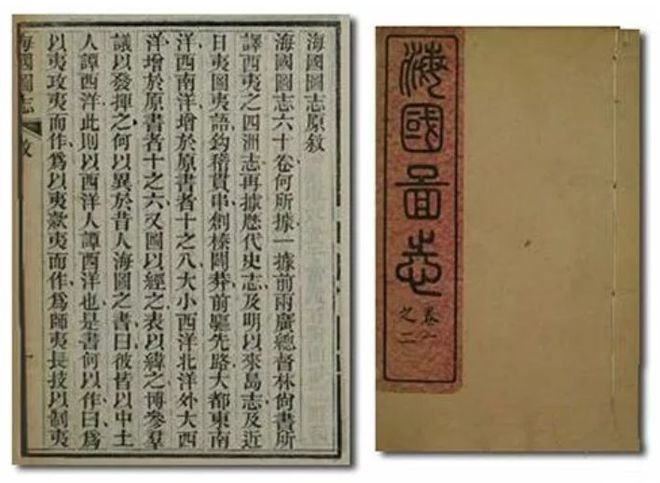 海國圖志原敘
海國圖志六十卷何所據一據前兩廣總督林尙書所
譯西夷之四洲志再據歷代史志及明以來島志及近
日夷圖夷語鈎稽貫串創榛闢莽前驅先路大都東南
洋西南洋增於原書者十之八大小西洋北洋外大西
洋增於原書者十之六又圖以經之表以緯之博參羣
議以發揮之何以異於昔人海圖之書曰彼皆以中土
人譚西洋此則以西洋人譚西洋也是書何以作曰爲
以夷攻夷而作爲以夷款夷而作爲師夷長技以制夷
海國圖志 敘 一
海國圖志
卷一
之二